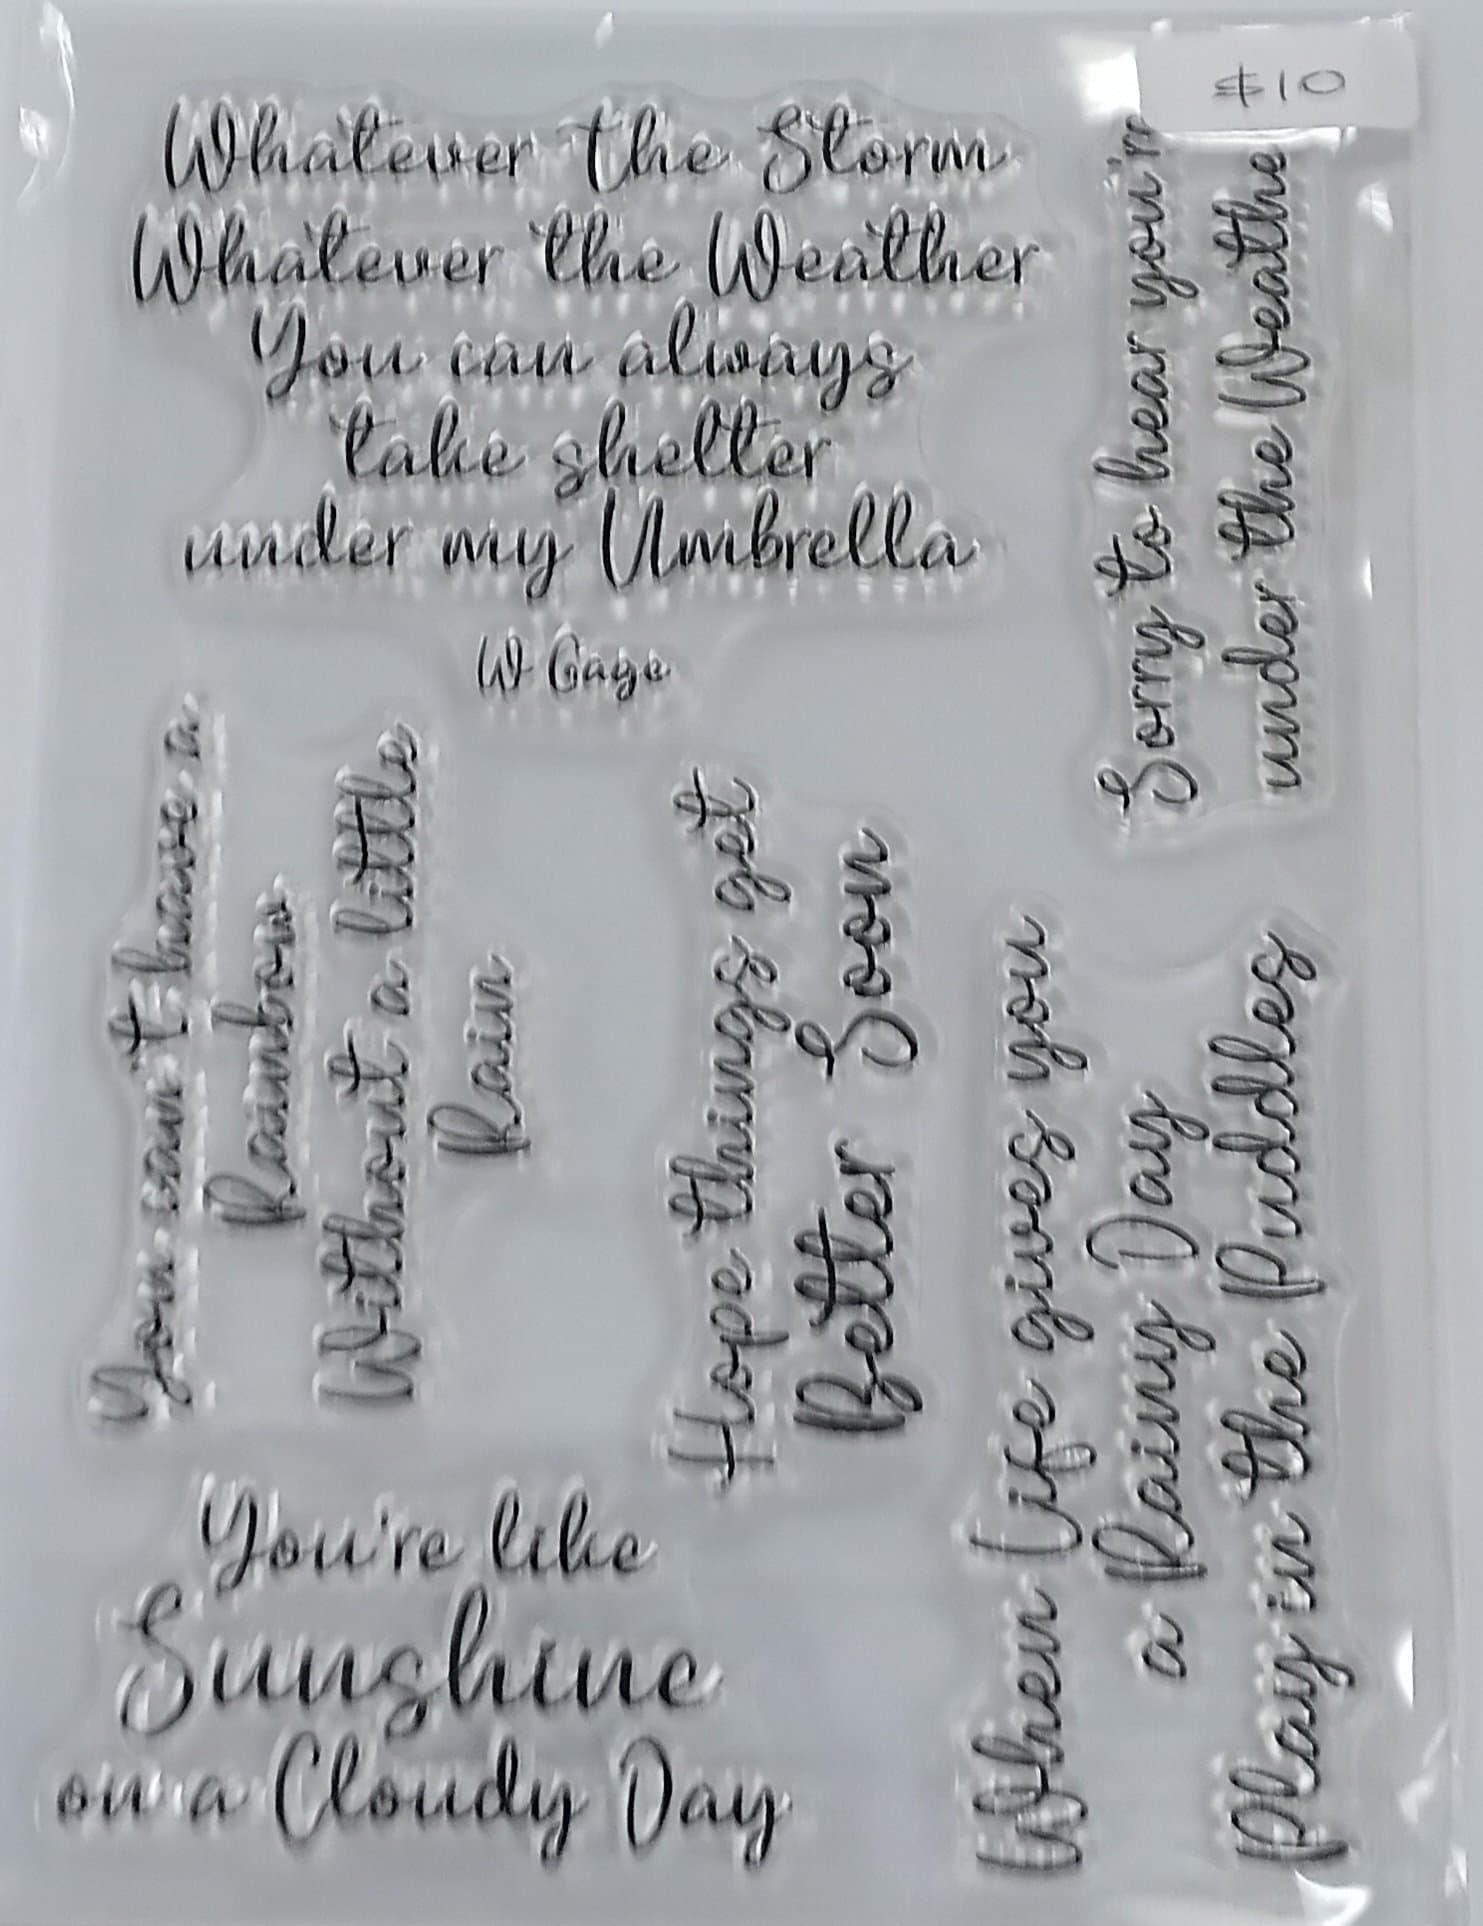 $10
Whatever the Storm
Whatever the Weather
You can always
take shelter
under my Umbrella
W Gage
Sorry to hear you'r
under the Weathe
You can't have a
Rainbow
Without a little
Rain
Hope things get
Better Soon
When Life gives you
a Rainy Day
Play in the Puddles
You're like
Sunshine
on a Cloudy Day